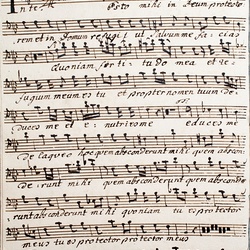 Esto mihi in Deum protecto-
rem et in Domum refugij ut salvum me facias
Quoniam forti: tu do mea et re-
fugium meum es tu et propter nomen tuum de-
duces me et e: nutries me educes me
De laqueo hoc quem absconderunt mihi quem abscon-
de: runt mihi quem absconde-
runt absconderunt mihi quoniam tu es protector
meus tu es protector protector meus